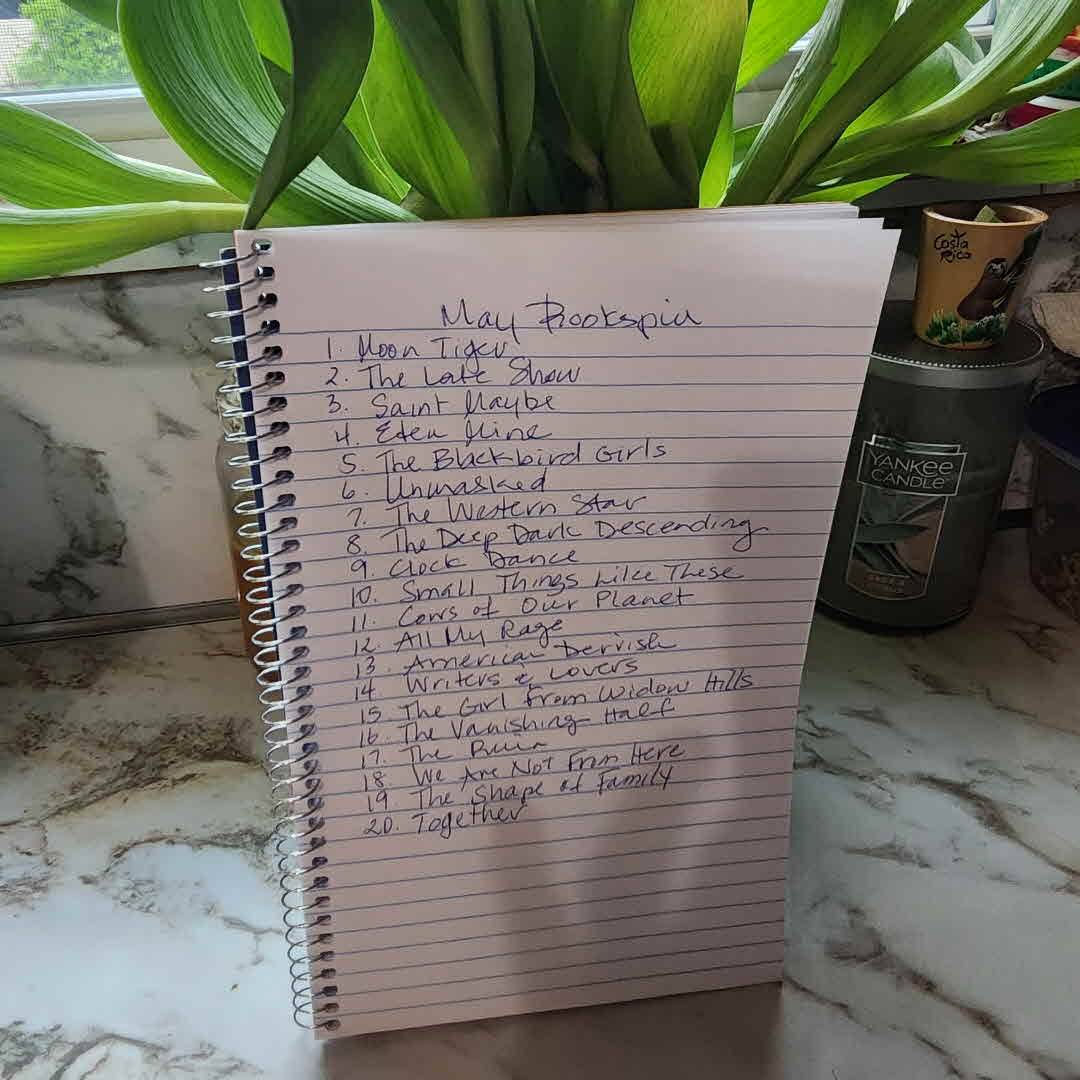 May Bookspin
1. Moon Tiger
2. The Late Show
3. Saint Maybe
4. Eden Mine
5. The Blackbird Girls
6. Unmasked
7. The Western Star
8. The Deep Dark Descending
9. Clock Dance
10. Small Things Like These
11. Cows of Our Planet
12. All My Rage
13. American Dervish
14. Writers & Lovers
15. The Girl From Widow Hills
16. The Vanishing Half
17. The Ruin
18. We Are Not From Here
19. The Shape of Family
20. Together
Costa
Rica
YANKEE
CANDLE